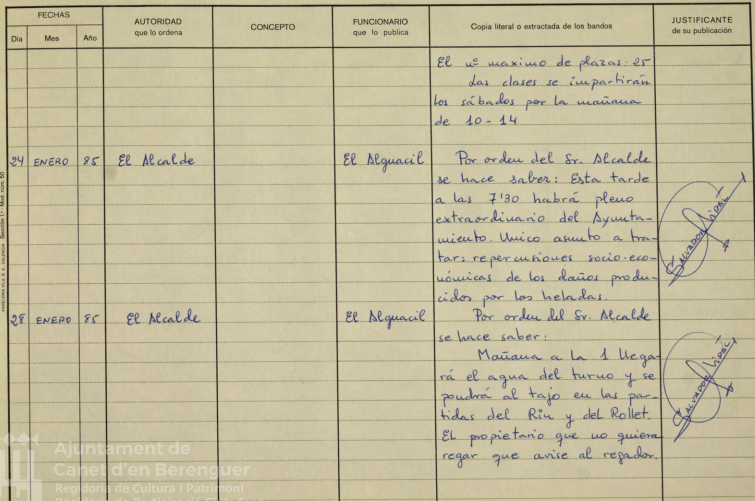 FECHAS
Día
Mes
Año
AUTORIDAD
que lo ordena
CONCEPTO
FUNCIONARIO
que lo publica
Copia literal o extractada de los bandos
JUSTIFICANTE
de su publicación
El nº maximo de plazas: 25
Las clases se impartirán
los sábados por la mañana
de 10 - 14
24 ENERO 85 El Alcalde El Alguacil
Por orden del Sr. Alcalde
se hace saber: Esta tarde
a las 7'30 habrá pleno
extraordinario del Ayunta-
miento. Unico asunto a tra-
tar: repercusiones socio-eco-
nómicas de los daños produ-
cidos por las heladas.
SALVADOR VIDAL
28 ENERO 85 El Alcalde El Alguacil
Por orden del Sr. Alcalde
se hace saber:
Mañana a la 1 llega-
rá el agua del turno y se
pondrá al tajo en las par-
tidas del Riu y del Rollet.
El propietario que no quiera
regar que avise al regador.
SALVADOR VIDAL
Sección 1.ª Mod. núm. 50
Ajuntament de
Canet d'en Berenguer
Regidoria de Cultura i Patrimoni